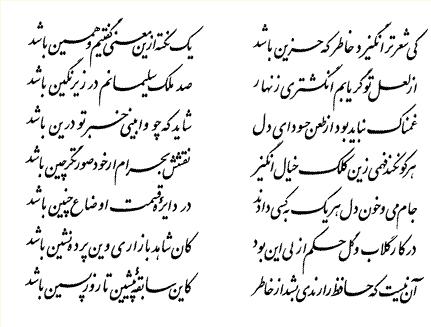 کی شعر تر انگیزد خاطر که حزین باشد یک نکته ازین معنی گفتیم و همین باشد
از لعل تو گر یابم انگشتری زنهار صد ملک سلیمانم در زیر نگین باشد
غمناک نباید بود از طعن حسود ای دل شاید که چو وابینی خیر تو درین باشد
هر کو نکند فهمی زین کلک خیال انگیز نقشش بحرام ار خود صورتگر چین باشد
جام می و خون دل هر یک به کسی دادند در دایره قسمت اوضاع چنین باشد
در کار گلاب و گل حکم ازلی این بود کان شاهد بازاری وین پرده نشین باشد
آن نیست که حافظ را رندی بشد از خاطر کاین سابقه پیشین تا روز پسین باشد